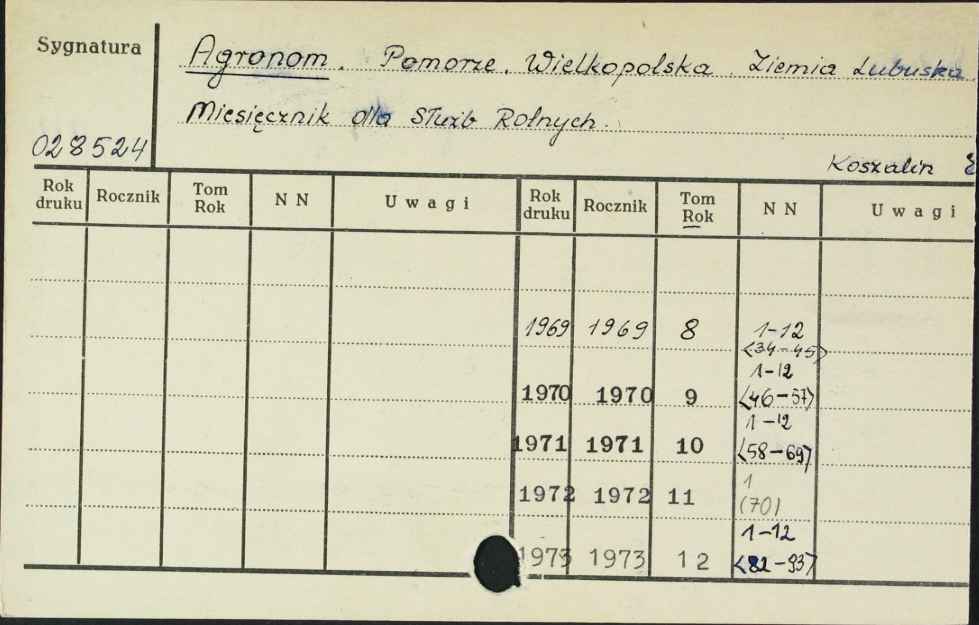 Sygnatura
Agronom. Pomorze. Wielkopolska. Ziemia Lubuska
Miesięcznik dla Służb Rolnych.
028524
Koszalin
Rok druku Rocznik Tom Rok N N Uwagi Rok druku Rocznik Tom Rok N N Uwagi
1969 1969 8 1-12
<34-45>
1-12
1970 1970 9 <46-57>
1-12
1971 1971 10 <58-69>
1972 1972 11 1
(70)
1-12
1973 1973 12 <82-93>